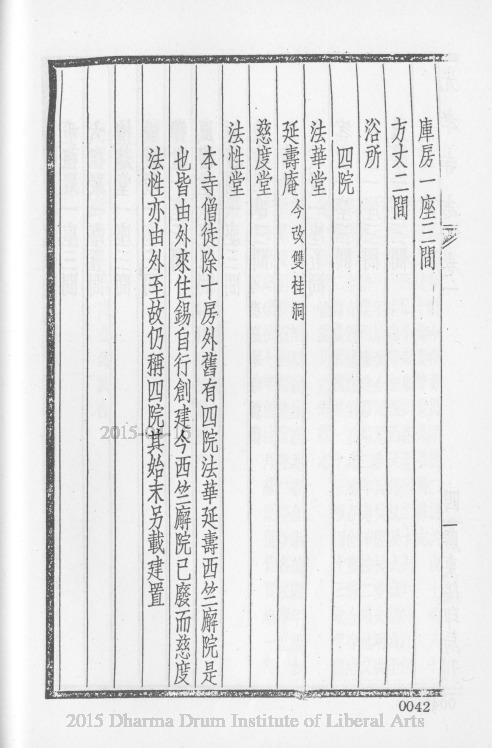 庫房一座三間
方丈二間
浴所
四院
法華堂
延壽庵今改雙桂洞
慈度堂
法性堂
本寺僧徒除十房外舊有四院法華延壽西竺廨院是
也皆由外來住錫自行創建今西竺廨院已廢而慈度
法性亦由外至故仍稱四院其始末另載建置
0042
2015 Dharma Drum Institute of Liberal Arts